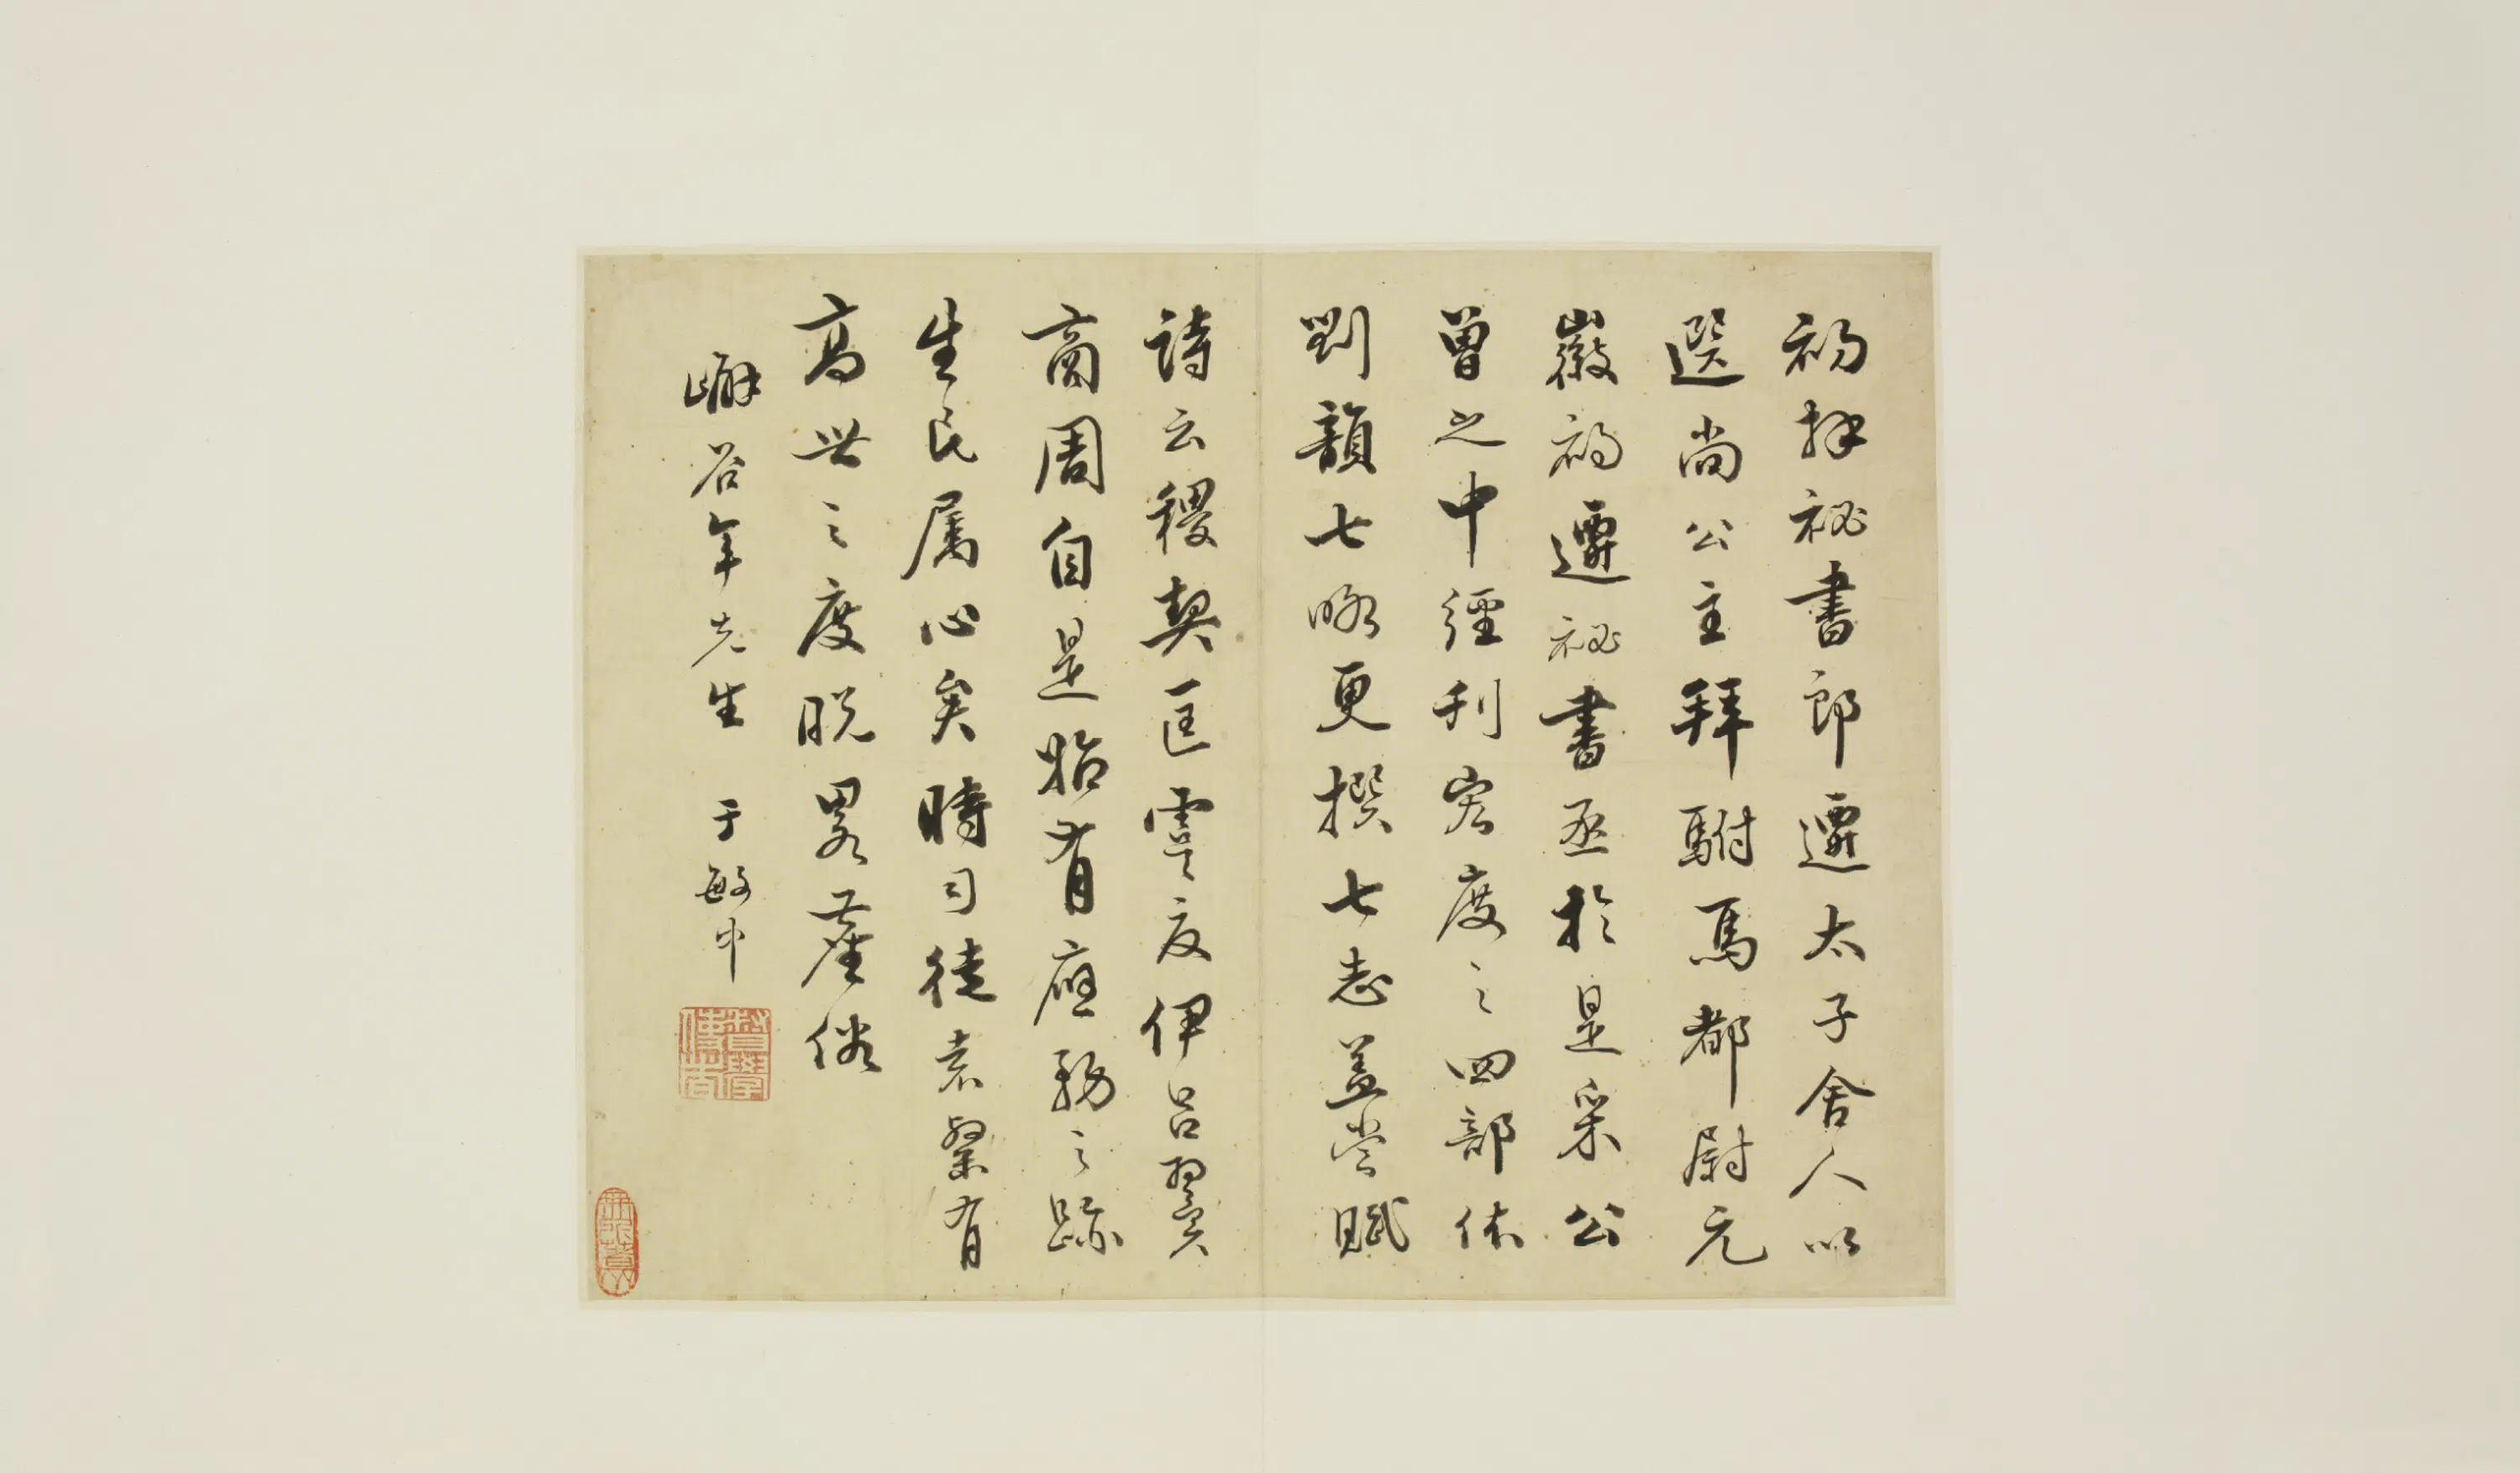 初拜祕書郎遷太子舍人以
選尚公主拜駙馬都尉元
徽初遷祕書丞於是采公
曾之中經刊宏度之四部依
劉韻七略更撰七志盖嘗賦
詩云稷契匡虞夏伊吕翼
商周自是始有應務之跡
生民属心矣時司徒袁粲有
高世之度脱畧塵俗
嶰谷年先生 于敏中